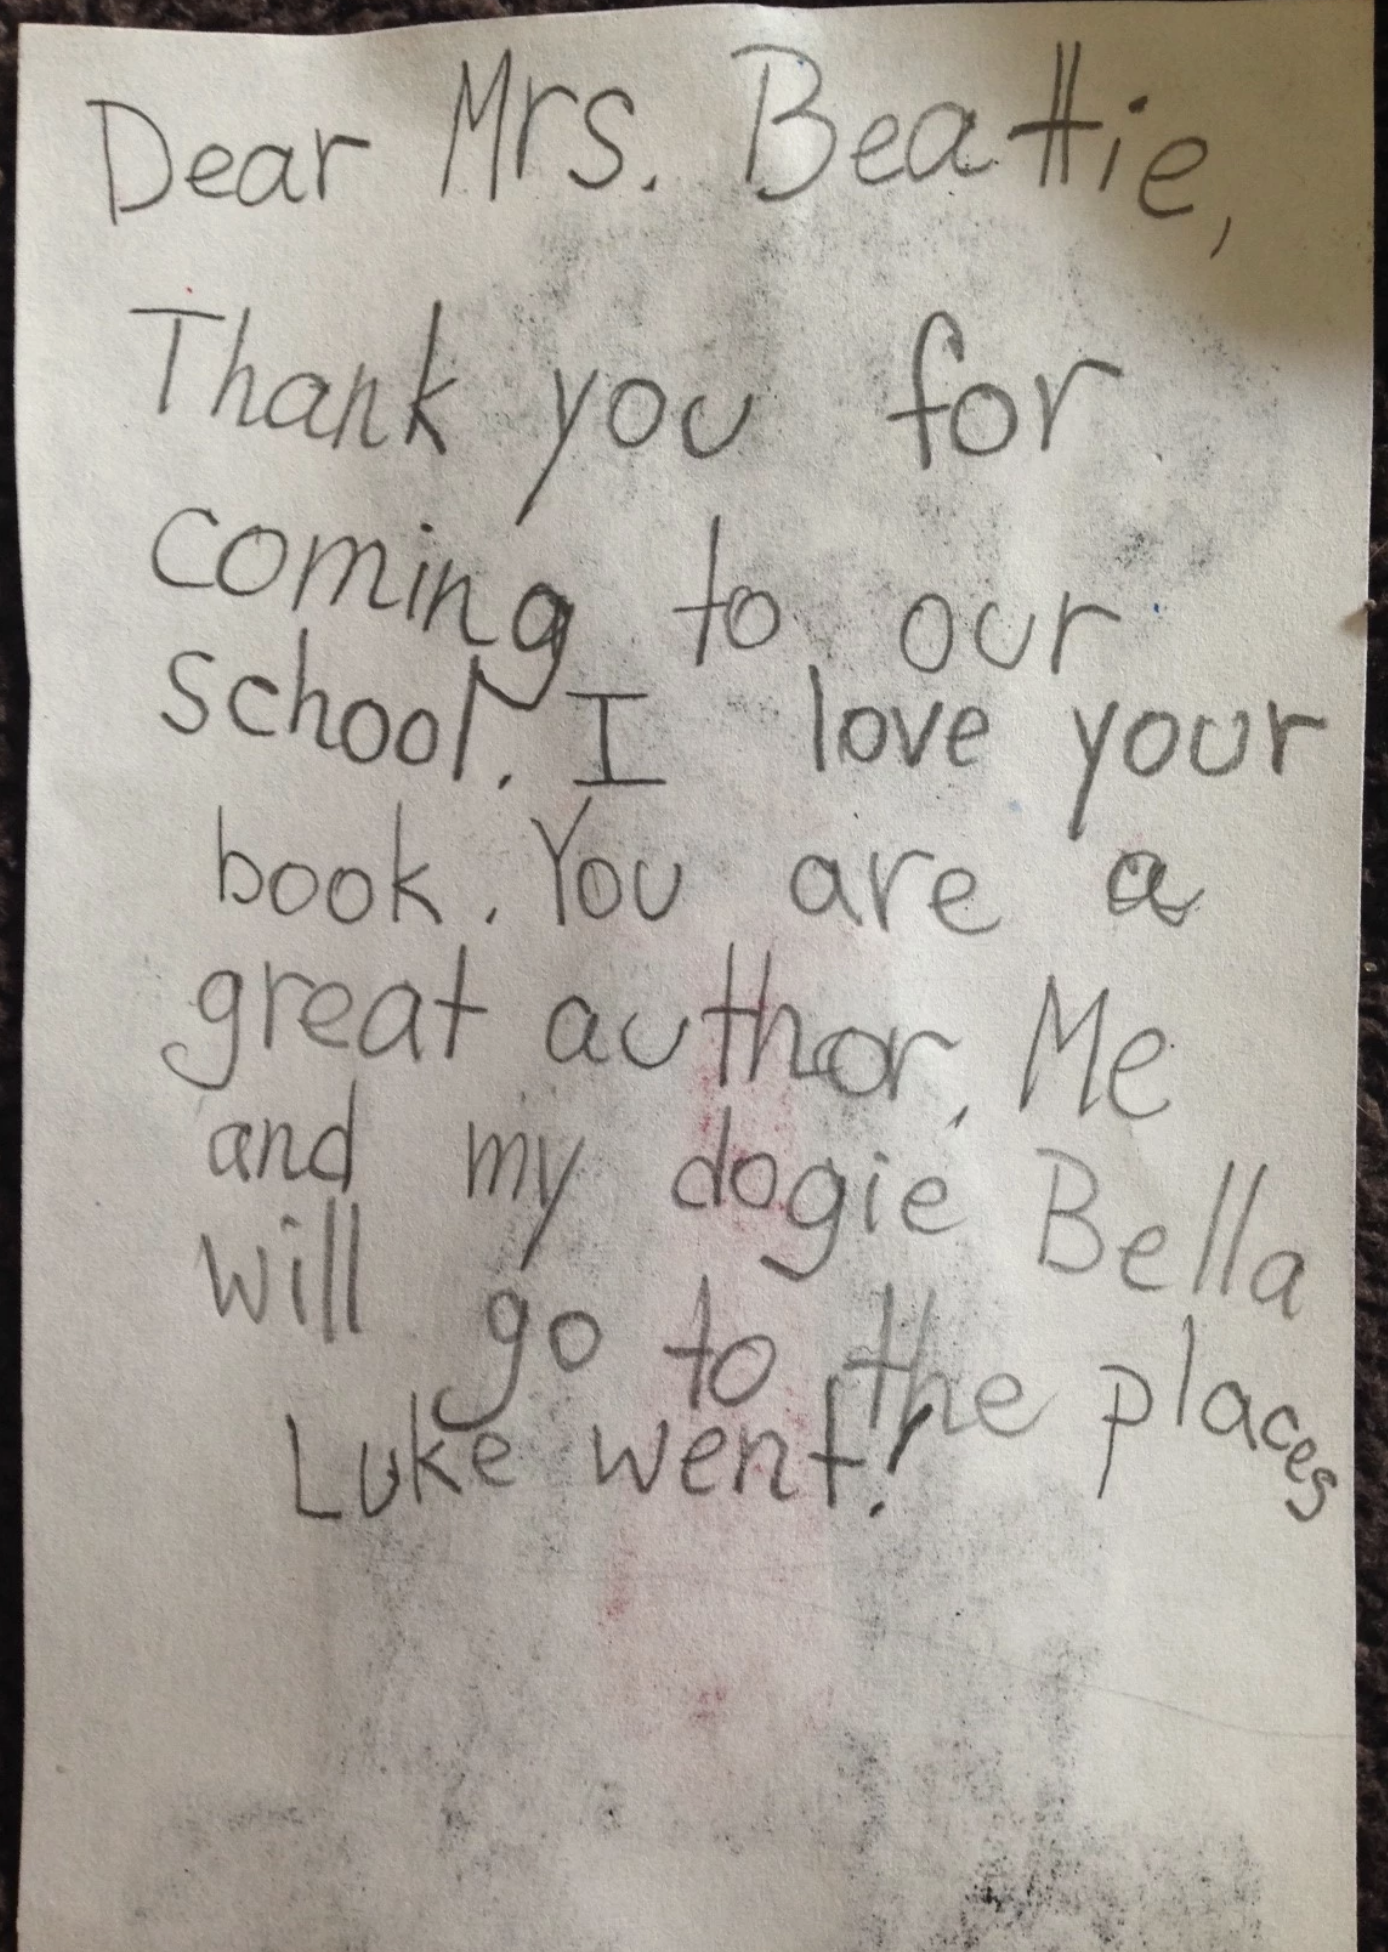 Dear Mrs. Beattie,
Thank you for
coming to our
school. I love your
book. You are a
great author. Me
and my dogie Bella
will go to the places
Luke went!